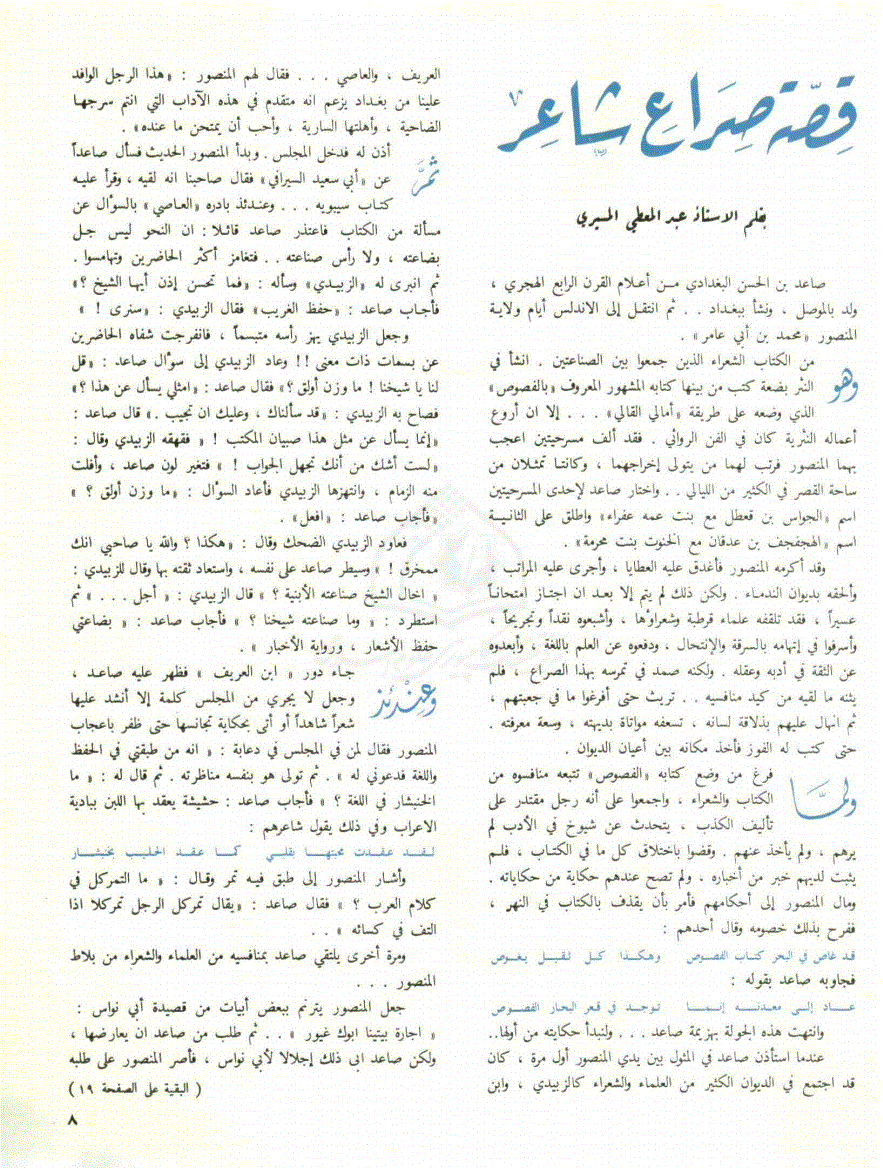 قصّة صِرَاعِ شاعِر
بقلم الاستاذ عبد المعطي المسيري
صاعد بن الحسن البغدادي من أعلام القرن الرابع الهجري ،
ولد بالموصل ، ونشأ ببغداد . . ثم انتقل إلى الاندلس أيام ولاية
المنصور «محمد بن أبي عامر» .
وهو من الكتاب الشعراء الذين جمعوا بين الصناعتين . انشأ في
النثر بضعة كتب من بينها كتابه المشهور المعروف «بالفصوص»
الذي وضعه على طريقة «أمالي القالي» . . . إلا ان أروع
أعماله النثرية كان في الفن الروائي . فقد ألف مسرحيتين اعجب
بهما المنصور فرتب لهما من يتولى إخراجهما ، وكانتا تمثلان من
ساحة القصر في الكثير من الليالي . . واختار صاعد لإحدى المسرحيتين
اسم «الجواس بن قعطل مع بنت عمه عفراء» واطلق على الثانية
اسم «الهجفجف بن عدقان مع الخنوت بنت محرمة» .
وقد أكرمه المنصور فأغدق عليه العطايا ، وأجرى عليه المراتب ،
وألحقه بديوان الندماء . ولكن ذلك لم يتم إلا بعد ان اجتاز امتحاناً
عسيراً ، فقد تلقفه علماء قرطبة وشعراؤها ، وأشبعوه نقداً وتجريحاً ،
وأسرفوا في إتهامه بالسرقة والإنتحال ، ودفعوه عن العلم باللغة ، وأبعدوه
عن الثقة في أدبه وعقله . ولكنه صمد في تمرسه بهذا الصراع ، فلم
يثنه ما لقيه من كيد منافسيه . . تريث حتى أفرغوا ما في جعبتهم ،
ثم انهال عليهم بذلاقة لسانه ، تسعفه مواتاة بديهته ، وسعة معرفته .
حتى كتب له الفوز فأخذ مكانه بين أعيان الديوان .
ولمّا فرغ من وضع كتابه «الفصوص» تتبعه منافسوه من
الكتاب والشعراء ، واجمعوا على أنه رجل مقتدر على
تأليف الكذب ، يتحدث عن شيوخ في الأدب لم
يرهم ، ولم يأخذ عنهم . وقضوا باختلاق كل ما في الكتاب ، فلم
يثبت لديهم خبر من أخباره ، ولم تصح عندهم حكاية من حكاياته .
ومال المنصور إلى أحكامهم فأمر بأن يقذف بالكتاب في النهر ،
ففرح بذلك خصومه وقال أحدهم :
قد غاص في البحر كتاب الفصوص وهكذا كل ثقيل يغوص
فجاوبه صاعد بقوله :
عاد إلى معدنه إنما توجد في قعر البحار الفصوص
وانتهت هذه الجولة بهزيمة صاعد . . . ولنبدأ حكايته من أولها..
عندما استأذن صاعد في المثول بين يدي المنصور أول مرة ، كان
قد اجتمع في الديوان الكثير من العلماء والشعراء كالزبيدي ، وابن
العريف ، والعاصي . . . فقال لهم المنصور : «هذا الرجل الوافد
علينا من بغداد يزعم انه متقدم في هذه الآداب التي انتم سرجها
الضاحية ، وأهلتها السارية ، وأحب أن يمتحن ما عنده» .
ثمَّ أذن له فدخل المجلس . وبدأ المنصور الحديث فسأل صاعداً
عن «أبي سعيد السيرافي» فقال صاحبنا انه لقيه ، وقرأ عليه
كتاب سيبويه . . . وعندئذ بادره «العاصي» بالسؤال عن
مسألة من الكتاب فاعتذر صاعد قائلا : ان النحو ليس جل
بضاعته ، ولا رأس صناعته . . فتغامز أكثر الحاضرين وتهامسوا .
ثم انبرى له «الزبيدي» وسأله : «فما تحسن إذن أيها الشيخ ؟»
فأجاب صاعد : «حفظ الغريب» فقال الزبيدي : «سنرى ! »
وجعل الزبيدي يهز رأسه متبسماً ، فانفرجت شفاه الحاضرين
عن بسمات ذات معنى !! وعاد الزبيدي إلى سؤال صاعد : «قل
لنا يا شيخنا ! ما وزن أولق ؟» فقال صاعد : «امثلي يسأل عن هذا ؟»
فصاح به الزبيدي : «قد سألناك ، وعليك ان تجيب .» قال صاعد :
«إنما يسأل عن مثل هذا صبيان المكتب ! » فقهقه الزبيدي وقال :
«لست أشك من أنك تجهل الجواب ! » فتغير لون صاعد ، وأفلت
منه الزمام ، وانتهزها الزبيدي فأعاد السؤال : «ما وزن أولق ؟ »
«فأجاب صاعد : «افعل» .
فعاود الزبيدي الضحك وقال : «هكذا ؟ والله يا صاحبي انك
ممخرق ! » وسيطر صاعد على نفسه ، واستعاد ثقته بها وقال للزبيدي :
« اخال الشيخ صناعته الأبنية ؟ » قال الزبيدي : « أجل . . . » ثم
استطرد : « وما صناعته شيخنا ؟ » فأجاب صاعد : « بضاعتي
حفظ الأشعار ، ورواية الأخبار » .
وعندئذ جاء دور « ابن العريف » فظهر عليه صاعد ،
وجعل لا يجري من المجلس كلمة إلا أنشد عليها
شعراً شاهداً أو أتى بحكاية تجانسها حتى ظفر باعجاب
المنصور فقال لمن في المجلس في دعابة : « انه من طبقتي في الحفظ
واللغة فدعوني له » . ثم تولى هو بنفسه مناظرته . ثم قال له : « ما
الخنبشار في اللغة ؟ » فأجاب صاعد : حشيشة يعقد بها اللبن ببادية
الاعراب وفي ذلك يقول شاعرهم :
لقد عقدت محبتها بقلبي كما عقد الحليب بخنبشار
وأشار المنصور إلى طبق فيه تمر وقال : « ما التمركل في
كلام العرب ؟ » فقال صاعد : «يقال تمركل الرجل تمركلا اذا
التف في كسائه » . .
ومرة أخرى يلتقي صاعد بمنافسيه من العلماء والشعراء من بلاط
المنصور . . .
جعل المنصور يترنم ببعض أبيات من قصيدة أبي نواس :
« اجارة بيتينا ابوك غيور » . . ثم طلب من صاعد ان يعارضها ،
ولكن صاعد ابى ذلك إجلالا لأبي نواس ، فأصر المنصور على طلبه
( البقية على الصفحة ١٩ )
٨